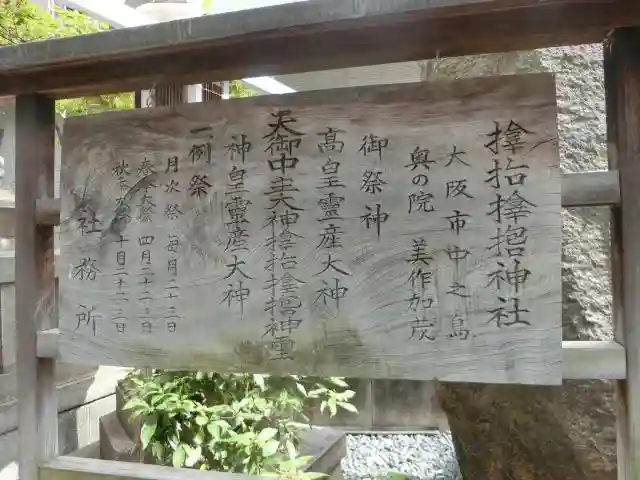 神社
大阪市中之島
奥の院　美作加茂
御祭神
高皇霊産大神
天御中主大神　神霊
神皇霊産大神
一例祭
月次祭　毎月二十三日
春季大祭　四月二十二、三日
秋季大祭　十月二十二、三日
社務所